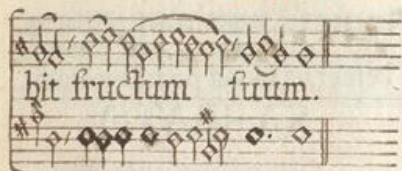 bit fructum suum.